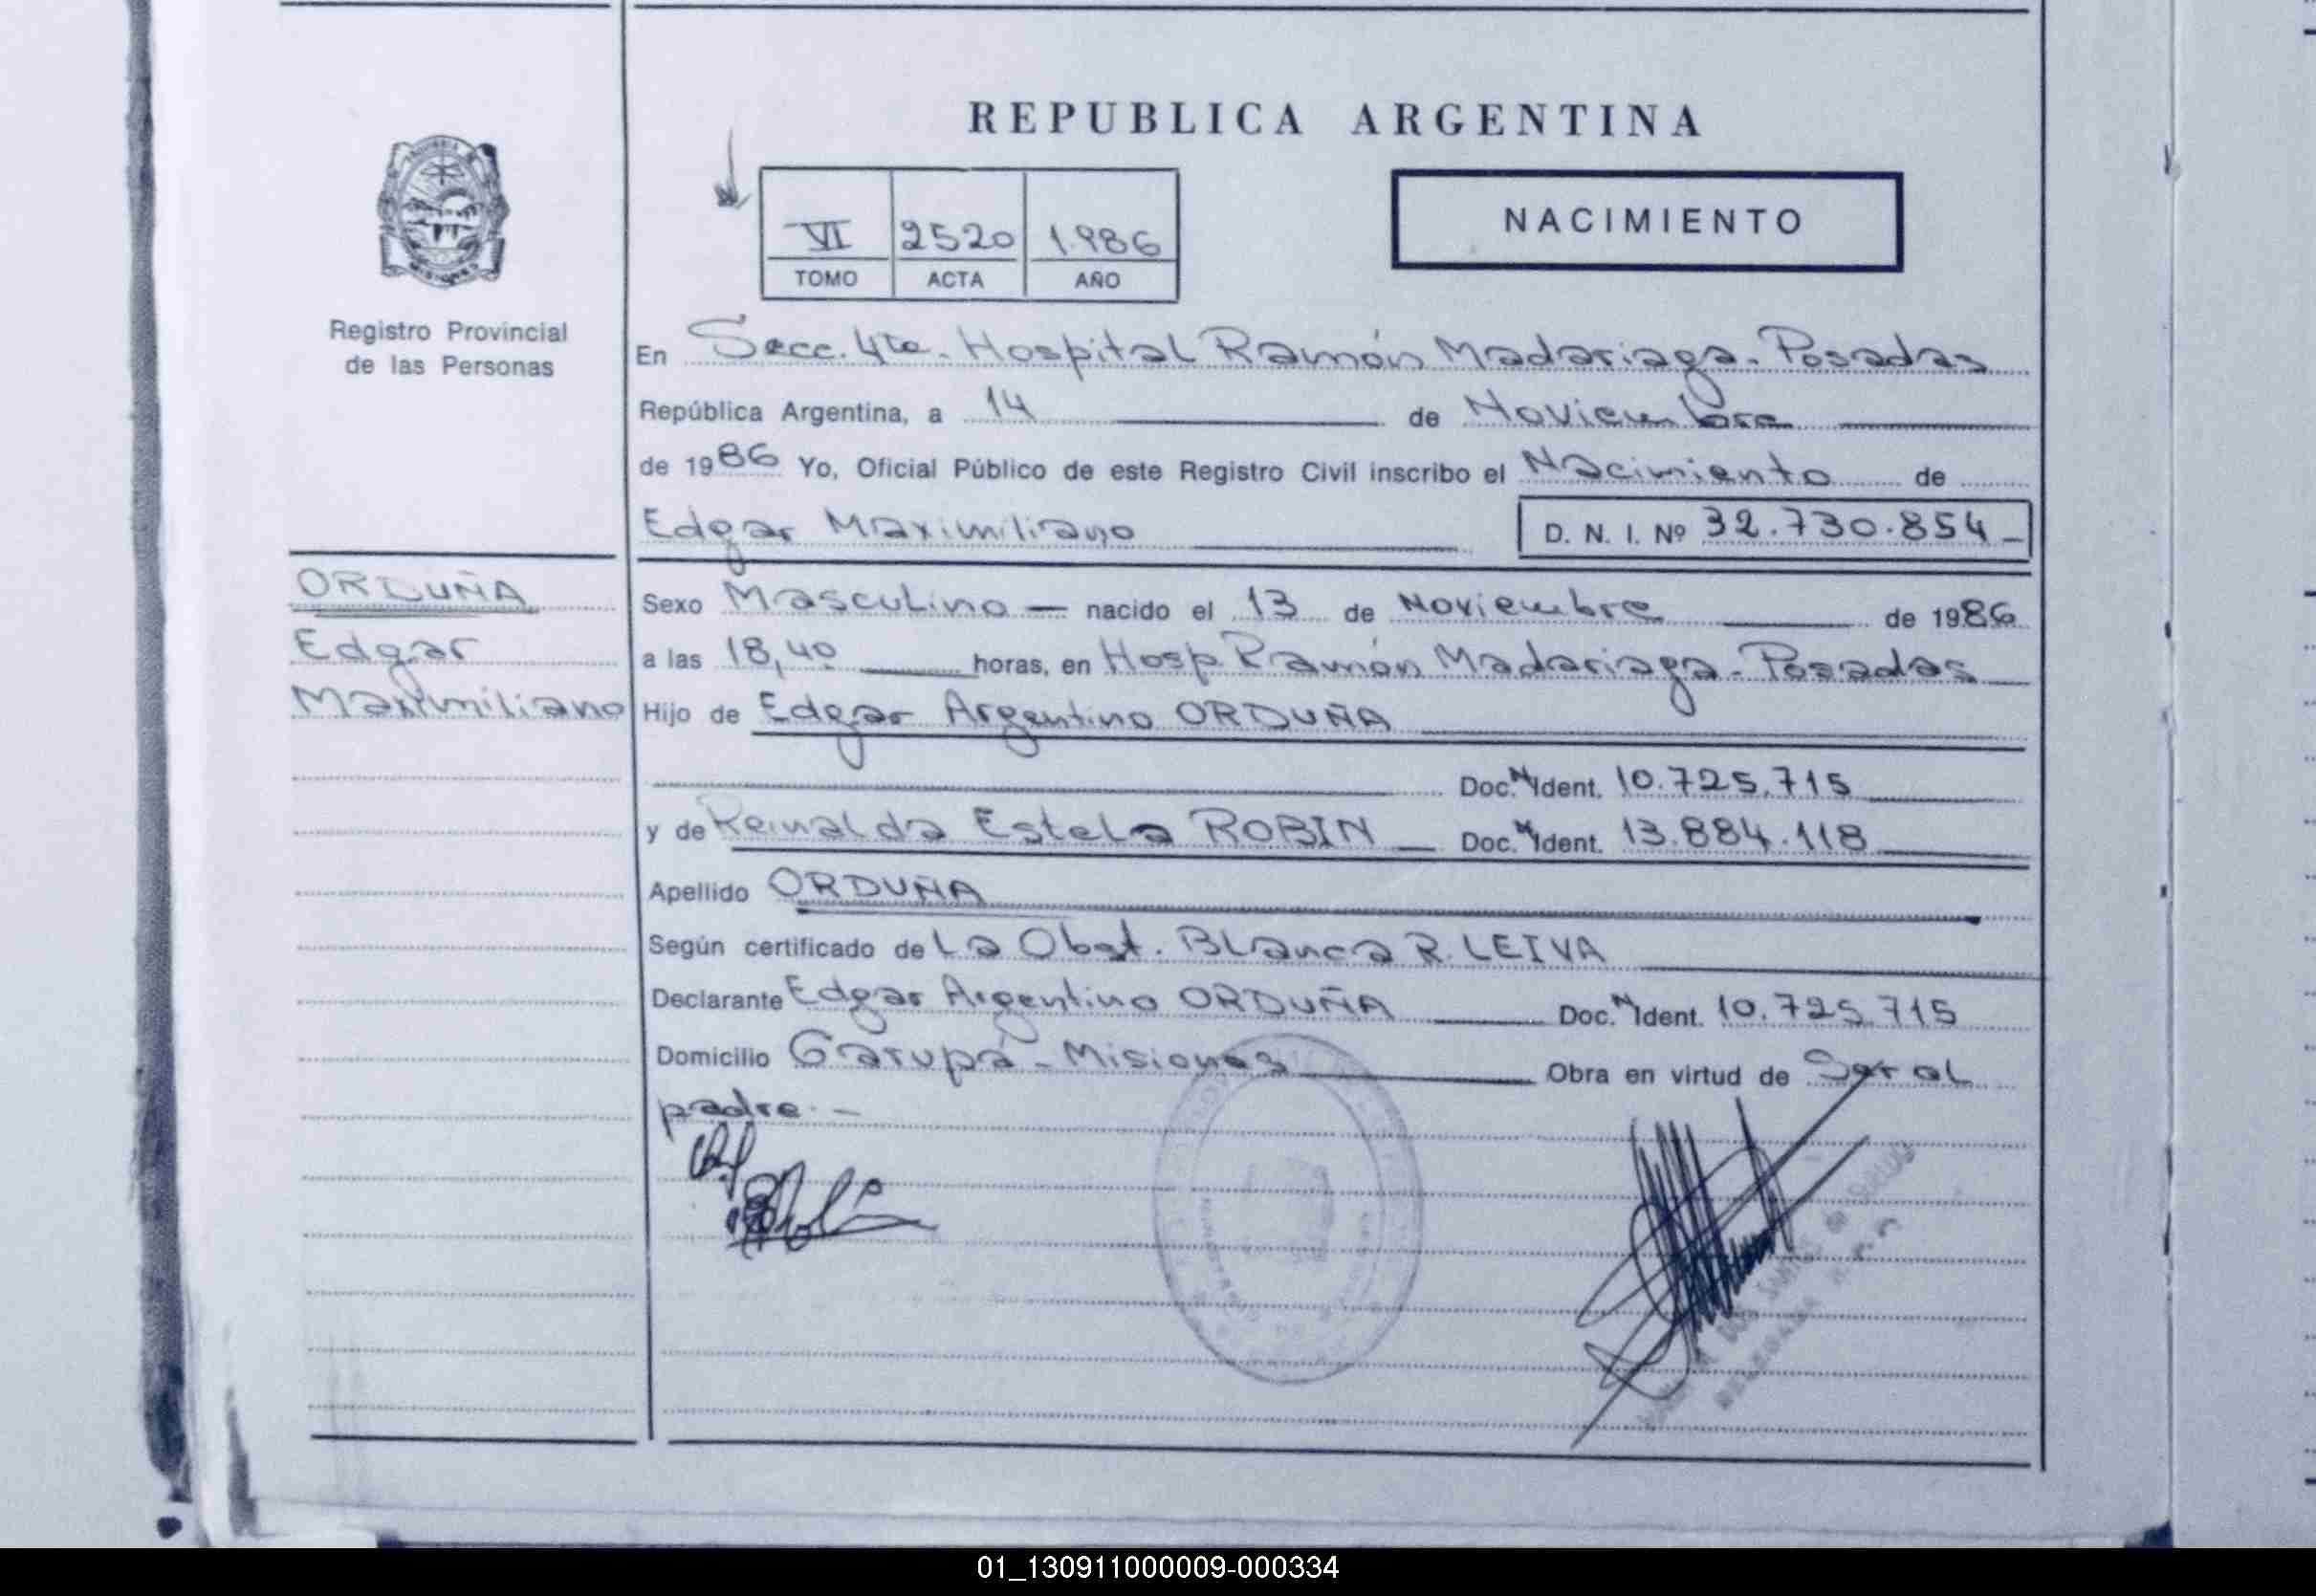 REPUBLICA ARGENTINA
VI 2520 1.986
TOMO ACTA AÑO
NACIMIENTO
MISIONES
Registro Provincial
de las Personas
En Secc. 4ta. Hospital Ramón Madariaga - Posadas
República Argentina, a 14 de Noviembre
de 1986 Yo, Oficial Público de este Registro Civil inscribo el Nacimiento de
Edgar Maximiliano D. N. I. Nº 32.730.854
ORDUÑA
Edgar
Maximiliano
Sexo Masculino — nacido el 13 de Noviembre de 1986
a las 18,40 horas, en Hosp Ramón Madariaga - Posadas
Hijo de Edgar Argentino ORDUÑA
Doc. N Ident. 10.725.715
y de Reinalda Estela ROBIN Doc. N Ident. 13.884.118
Apellido ORDUÑA
Según certificado de La Obst. Blanca R. LEIVA
Declarante Edgar Argentino ORDUÑA Doc. N Ident. 10.725.715
Domicilio Garupá - Misiones Obra en virtud de Ser el
padre. -
01_130911000009-000334